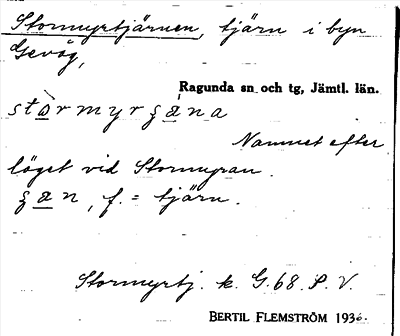 Stormyrtjärnen, tjärn i byn
Gevåg,
Ragunda sn och tg, Jämtl. län.
stòrmyrʂä̀na
Namnet efter
läget vid Stormyran.
ʂän, f. = tjärn.
Stormyrtj. k. G. 68. S. V.
BERTIL FLEMSTRÖM 1936.